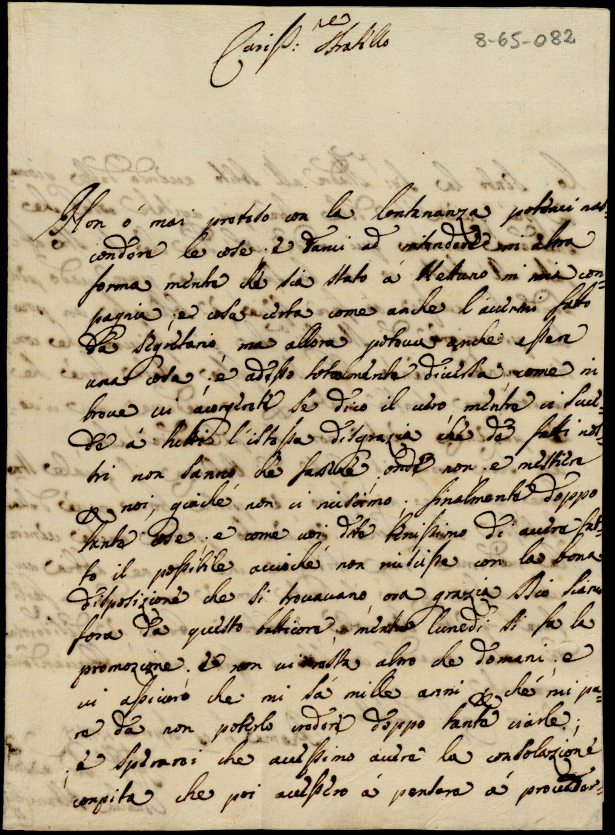 Cariss: re Fratello
8-65-082
Non ò mai preteso con la lontananza potervi nas-
condere le cose, e darvi ad intendere in altra
forma mentre che sia stato à Nettuno in mia com-
pagnia, è cosa certa come anche l'avermi fatto
da segretario ma allora poteva anche essere
una cosa, è adesso totalmente diversa come in
breve vi acorgerete se dico il vero mentre ci suce-
de à tutti l'istessa disgrazia che de fatti nos-
tri non sanno che farsene onde non è mestiere
p noi, giaché non ci riusciamo. finalmente doppo
tante cose, e come voi dite benissimo di avere fat-
to il possibile acciochè non riuscisse con la bona
disposizione che si trovavano ora grazia a Dio siamo
fora da questo batticore mentre lunedì si fa la
promozione. e non vi resta altro che domani, e
vi assicuro che mi sà mille anni che mi pa-
re da non poterlo credere doppo tante ciarle,
e sperarei che avessimo avere la consolazione
compita che poi avessero à pensare à proveder-